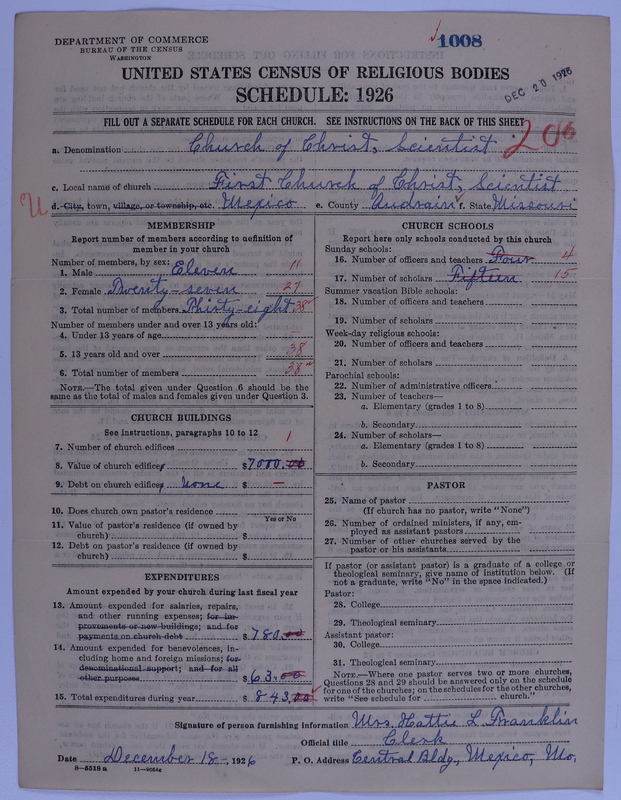 DEPARTMENT OF COMMERCE
BUREAU OF THE CENSUS
WASHINGTON
√ 1008
UNITED STATES CENSUS OF RELIGIOUS BODIES
SCHEDULE: 1926
DEC 20 1926
FILL OUT A SEPARATE SCHEDULE FOR EACH CHURCH. SEE INSTRUCTIONS ON THE BACK OF THIS SHEET
206
a. Denomination Church of Christ, Scientist
c. Local name of church First Church of Christ, Scientist
U d. City, town, village, or township, etc. Mexico e. County Audrain f. State Missouri
MEMBERSHIP
Report number of members according to definition of
member in your church
Number of members, by sex:
1. Male Eleven 11
2. Female Twenty-seven 27
3. Total number of members Thirty-eight 38
Number of members under and over 13 years old:
4. Under 13 years of age —
5. 13 years old and over 38
6. Total number of members 38
NOTE.—The total given under Question 6 should be the
same as the total of males and females given under Question 3.
CHURCH BUILDINGS
See instructions, paragraphs 10 to 12
7. Number of church edifices 1
8. Value of church edifices $7000.00
9. Debt on church edifices None $ —
10. Does church own pastor's residence
Yes or No
11. Value of pastor's residence (if owned by
church) $
12. Debt on pastor's residence (if owned by
church) $
EXPENDITURES
Amount expended by your church during last fiscal year
13. Amount expended for salaries, repairs,
and other running expenses; for im-
provements or new buildings; and for
payments on church debt $780.00
14. Amount expended for benevolences, in-
cluding home and foreign missions; for
denominational support; and for all
other purposes $63.00
15. Total expenditures during year $843.00
CHURCH SCHOOLS
Report here only schools conducted by this church
Sunday schools:
16. Number of officers and teachers Four 4
17. Number of scholars Fifteen 15
Summer vacation Bible schools:
18. Number of officers and teachers
19. Number of scholars
Week-day religious schools:
20. Number of officers and teachers
21. Number of scholars
Parochial schools:
22. Number of administrative officers
23. Number of teachers—
a. Elementary (grades 1 to 8)
b. Secondary
24. Number of scholars—
a. Elementary (grades 1 to 8)
b. Secondary
PASTOR
25. Name of pastor
(If church has no pastor, write "None")
26. Number of ordained ministers, if any, em-
ployed as assistant pastors
27. Number of other churches served by the
pastor or his assistants
If pastor (or assistant pastor) is a graduate of a college or
theological seminary, give name of institution below. (If
not a graduate, write "No" in the space indicated.)
Pastor:
28. College
29. Theological seminary
Assistant pastor:
30. College
31. Theological seminary
NOTE.—Where one pastor serves two or more churches,
Questions 28 and 29 should be answered only on the schedule
for one of the churches; on the schedules for the other churches,
write "See schedule for church."
Signature of person furnishing information Mrs. Hattie L. Franklin
Official title Clerk
Date December 18-, 1926 P. O. Address Central Bldg, Mexico, Mo.
8-5518 a